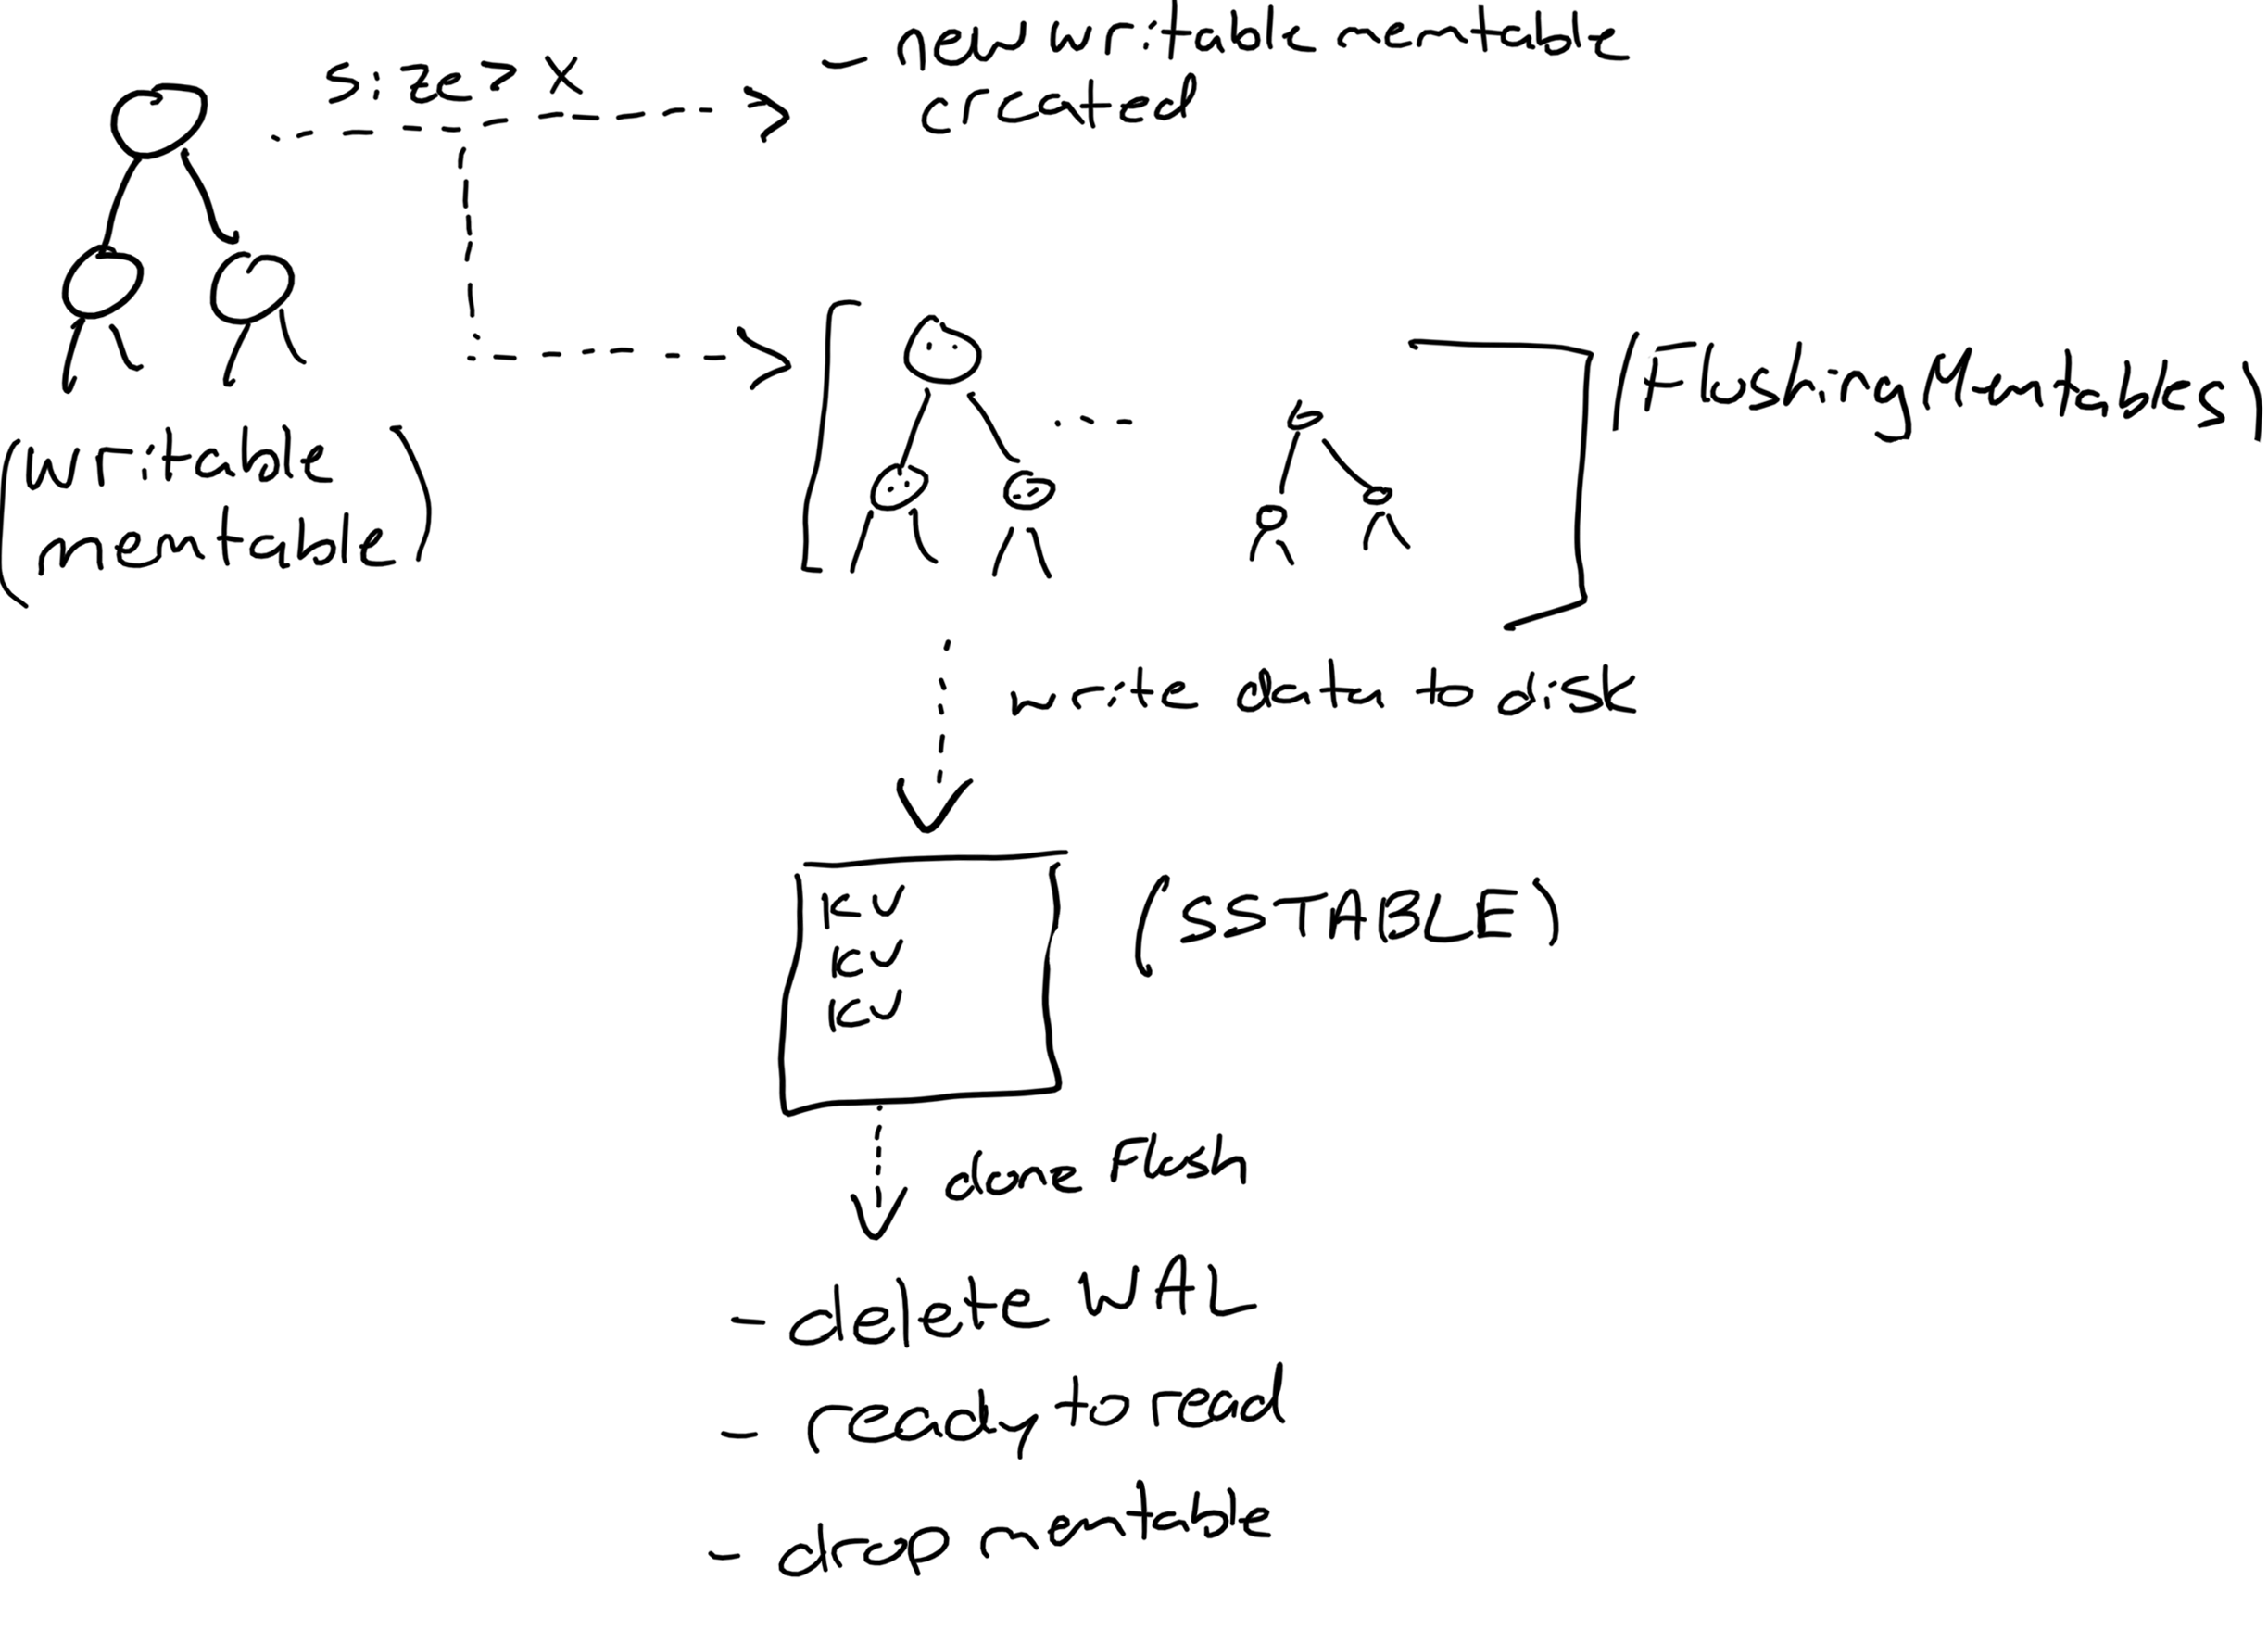 size > X
- new writable memtable
created
(writable
memtable)
...
(Flushing Memtables)
write data to disk
KV
KV
KV
(SSTABLE)
done Flush
- delete WAL
- ready to read
- drop memtable